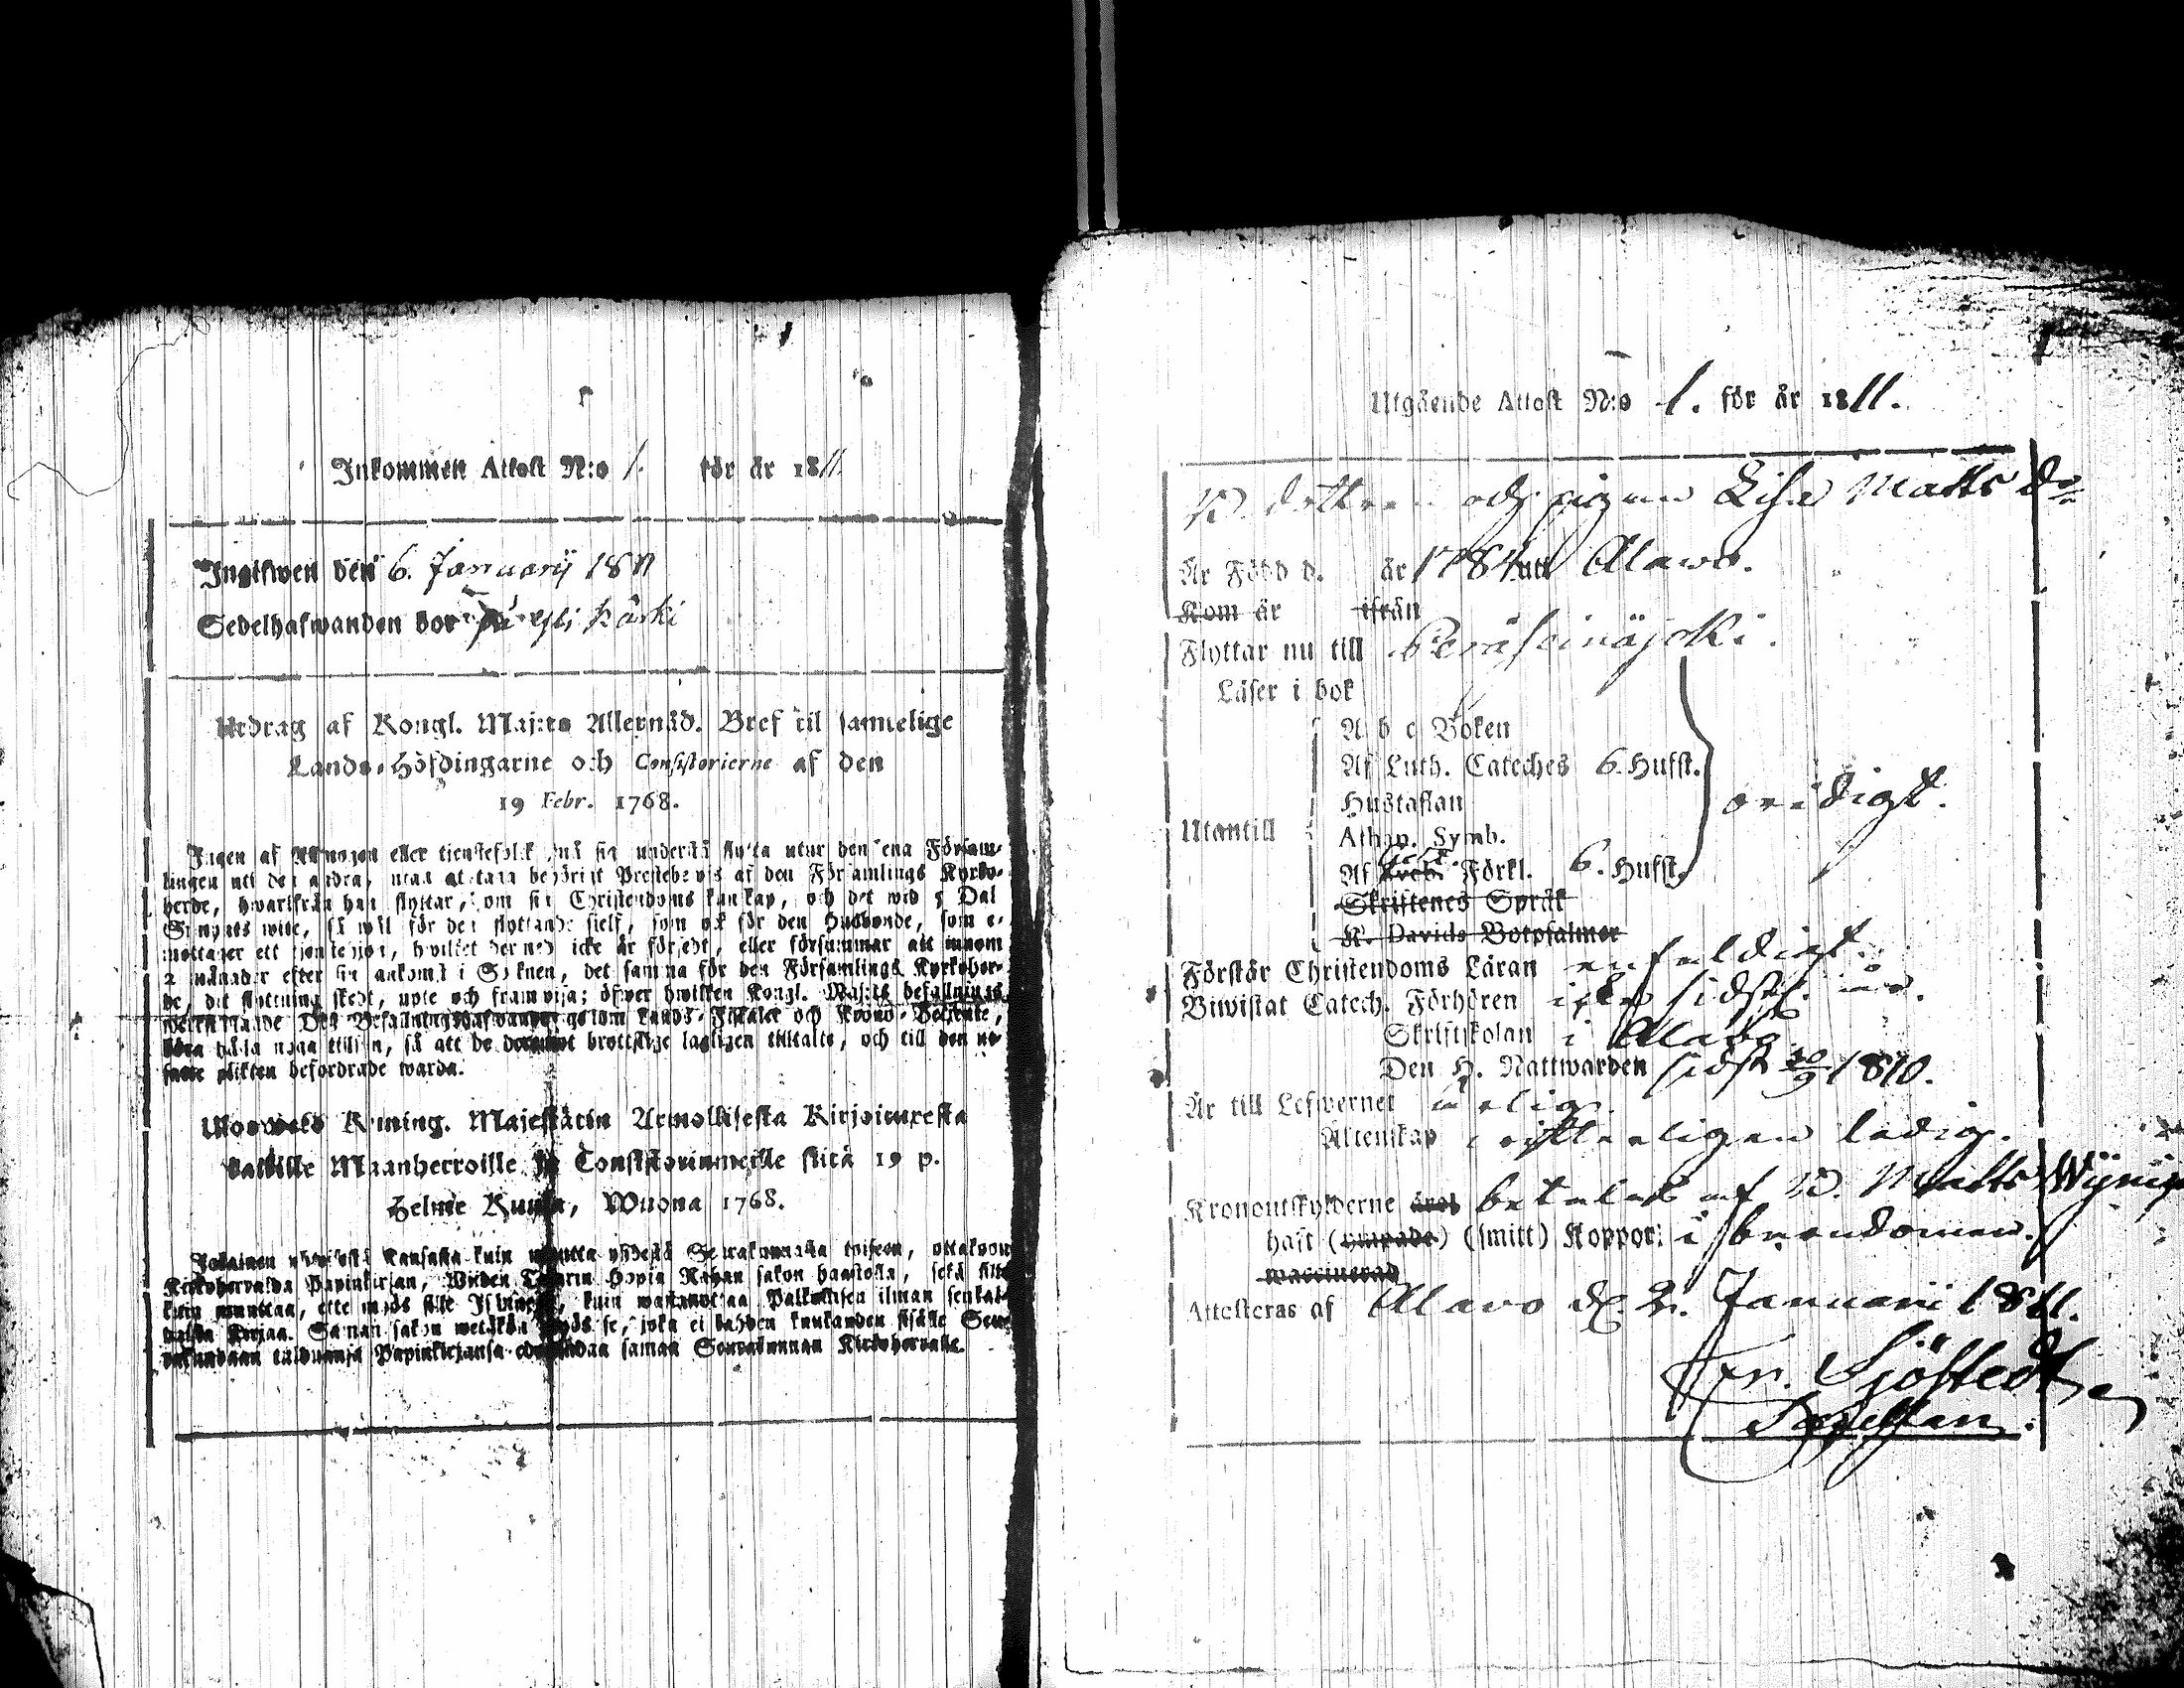 Inkommen Attest N:o 1. för år 1811
Ingifwen den 6. Januarij 1811
Sedelhafwanden bor på Yli Kärki
Utdrag af Kongl. Maj:ts Allernåd. Bref til samtelige
Lands-Höfdingarne och Consistorierne af den
19 Febr. 1768.
Ingen af Allmogen eller tienstefolk må sig understå flytta utur den ena Försam-
lingen uti den andra, utan at taga behörigt Prestebevis af den Församlings Kyrko-
herde, hwarifrån han flyttar, om sin Christendoms kunskap, och det wid 5 Dal
Silf:mts wite, så wäl för den flyttande sielf, som ock för den Husbonde, som e-
mottager ett tjenstehjon, hwilket dermed icke är försedt, eller försummar att innom
2 månader efter sin ankomst i Soknen, det samma för den Församlings Kyrkoher-
de, dit flyttning skedt, upte och framwisa; öfwer hwilken Kongl. Maj:ts befallnings
werkställande Des Befallningshafwande, som Lands-Fiskaler och Krono-Betiente,
böra hålla noga tillsyn, så att de deremot brottslige lagligen tilltalte, och till den ut-
satte plikten befordrade warda.
Ulosweto Kuning. Majestätin Armollisesta Kirjoituxesta
kaikille Maanherroille ja Consistoriumeille siitä 19 p.
Helme Kuusa, Wuona 1768.
Jokainen yhteisestä Kansasta kuin muutta yhdestä Seurakunnasta toiseen, ottakoon
Kirkkoherralda Papinkirjan, Wiiden Talarin Hopia Rahan sakon haastolla, sekä sille
kuin muuttaa, ette myös sille Isännelle, kuin wastanottaa Palkollisen ilman senkal-
taista Kirjaa. Saman sakon wetäkön myös se, joka ei kahden kuukauden sisälle Seu-
rakundaan tulduansa Papinkirjansa edesandaa saman Seurakunnan Kirkkoherralle.
Utgående Attest N:o 1. för år 1811.
dottren och pigan Lisa Matts dr
Är Född d. år 1784 uti Alawo.
Kom år ifrån
Flyttar nu till Peräseinäjoki.
Läser i bok
A b c Boken
Af Luth. Cateches 6. Hufst.
Hustaflan
Utantill
Athan. Symb.
oridigt.
Af Förkl. 6. Hufst.
Skriftenes Språk
K. Davids Botpsalmer
Förstår Christendoms Läran enfaldigt.
Biwistat Catech. Förhören sidstl. år.
Skriftskolan i Alavo
Den H. Nattwarden sidst 30/9 1810.
Är till Lefwernet ärlig.
Äktenskap ledig.
Kronoutskylderne året betalat af Matts
haft (ympade) (smitt) Koppor i barndomen.
waccinerad
Attesteras af Alavo d. 2. Januarii 1811.
Fr. Sjöstedt
Capellan.